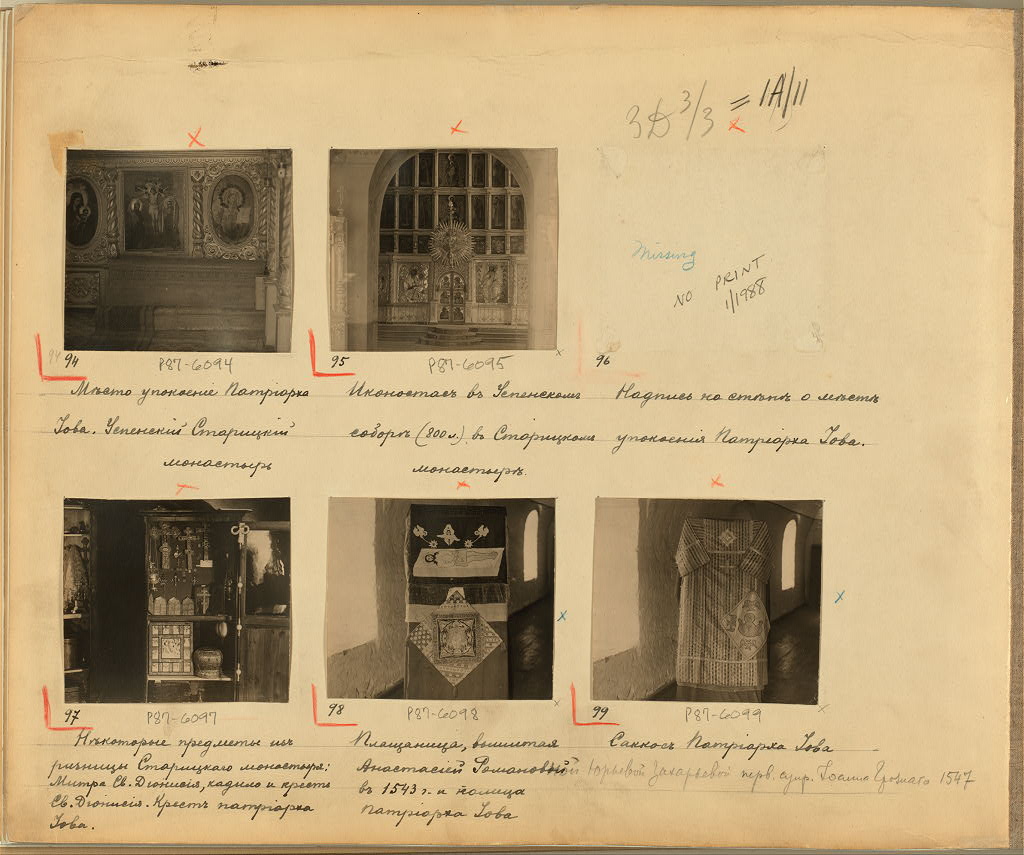 3D 3/3 = 1A/11
Missing
NO PRINT
1/1988
94 94 P87-6094
95 P87-6095
96
Мѣсто упокоеніе Патріарха
Іова. Успенскій Старицкій
монастырь
Иконостасъ въ Успенскомъ
соборѣ (800 л.) въ Старицкомъ
монастырѣ.
Надпись на стѣнѣ о мѣстѣ
упокоенія Патріарха Іова.
97 P87-6097
98 P87-6098
99 P87-6099
Нѣкоторые предметы изъ
ризницы Старицкаго монастыря:
Митра Св. Діонисія, кадило и крестъ
Св. Діонисія. Крестъ патріарха
Іова.
Плащаница, вышитая
Анастасіей Романовной Юрьевой Захарьевой перв. супр. Іоанна Грознаго 1547
въ 1543 г. и палица
патріарха Іова
Саккосъ Патріарха Іова